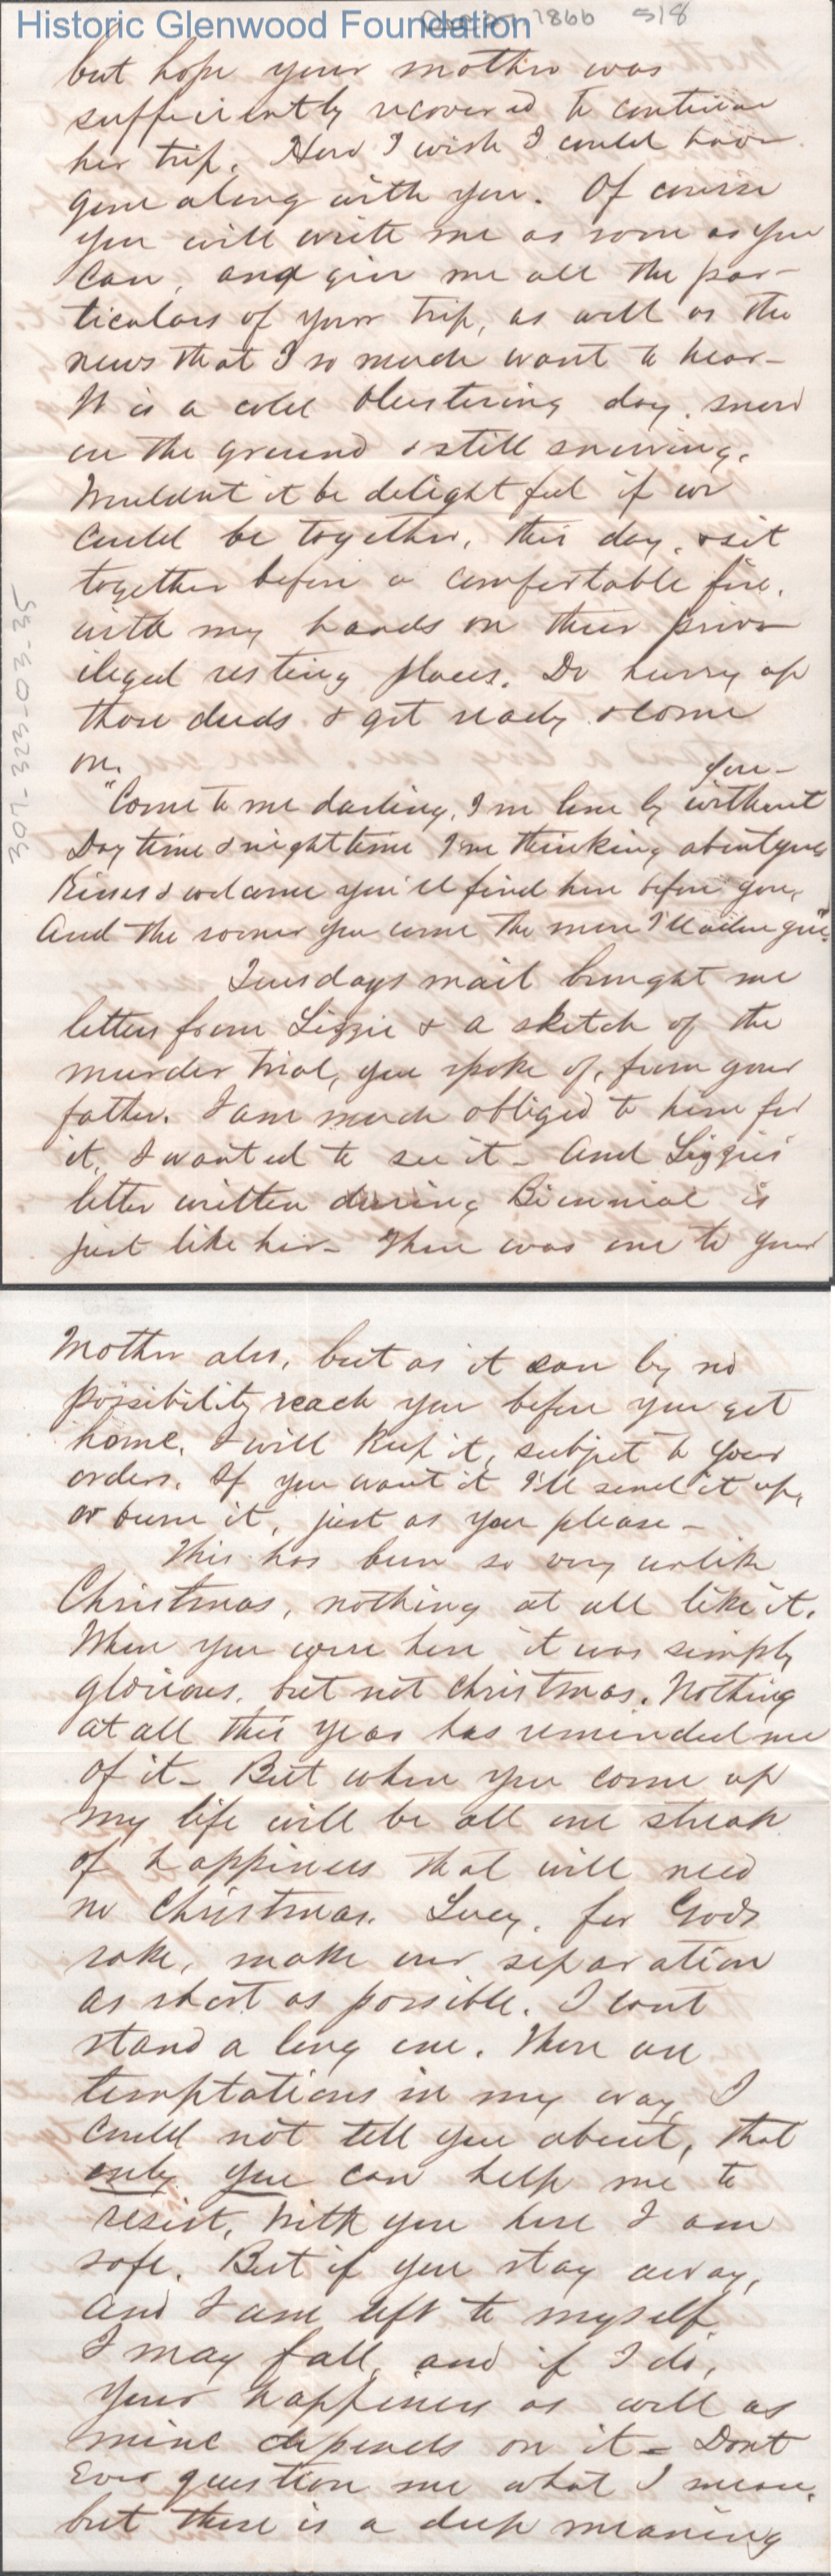 Historic Glenwood Foundation
1866 518
but hope your mother was
sufficiently recovered to continue
her trip. How I wish I could have
gone along with you. Of course
you will write me as soon as you
can, and give me all the par-
ticulars of your trip, as well as the
news that I so much want to hear-
It is a cold blustering day. snow
on the ground & still snowing.
Wouldnt it be delightful if we
could be together, this day, & sit
together before a comfortable fire,
with my hands on their priv-
ileged resting places. Do hurry up
those deeds & get ready & come
on.
"Come to me darling, I'm lonely without you-
Day time & night time I'm thinking about you
Kisses & welcome you'll find here before you,
And the sooner you come the more I'll adore you"
Tuesdays mail brought me
letters from Lizzie & a sketch of the
murder trial, you spoke of, from your
father. I am much obliged to him for
it, I wanted to see it- And Lizzies
letter written during Biennial is
just like her- There was one to your
307-323-03-35
Mother also, but as it can by no
possibility reach you before you get
home, I will keep it, subject to your
orders. If you want it I'll send it up,
or burn it, just as you please-
This has been so very unlike
Christmas, nothing at all like it.
When you were here it was simply
glorious, but not Christmas. Nothing
at all this year has reminded me
of it- But when you come up
my life will be all one streak
of happiness that will need
no Christmas. Lucy, for Gods
sake, make our separation
as short as possible. I cant
stand a long one. There are
temptations in my way, I
could not tell you about, that
only you can help me to
resist, With you here I am
safe. But if you stay away,
and I am left to myself,
I may fall, and if I do,
your happiness as well as
mine depends on it- Dont
ever question me what I mean,
but there is a deep meaning